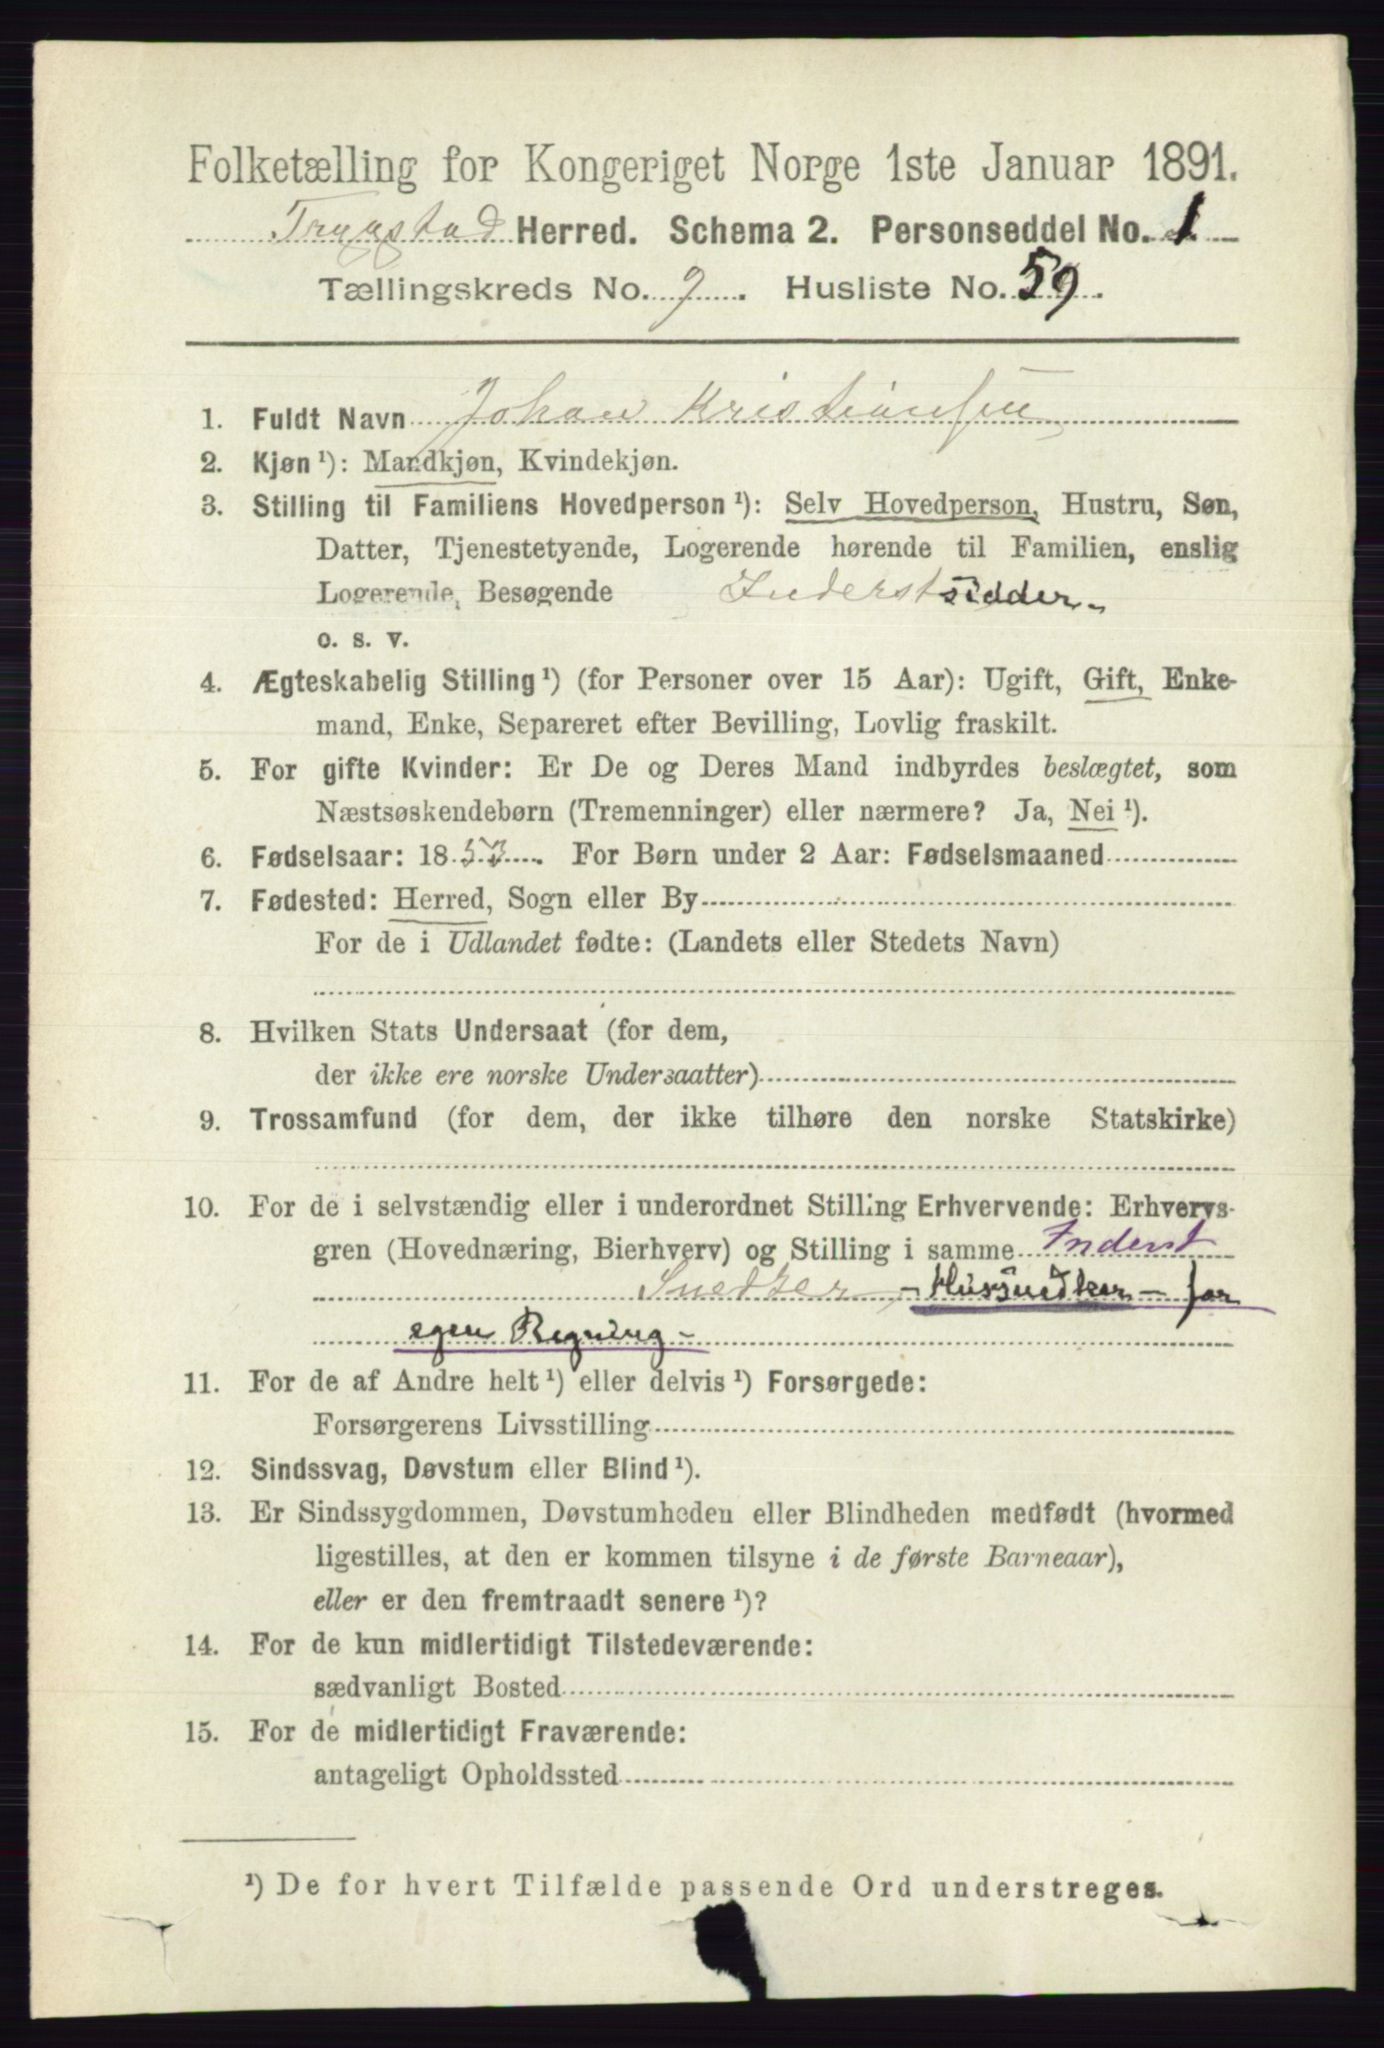 Folketælling for Kongeriget Norge 1ste Januar 1891.
Trygstad Herred. Schema 2. Personseddel No. 1
Tællingskreds No. 9. Husliste No. 59.
1. Fuldt Navn Johan Kristiansen
2. Kjøn¹): Mandkjøn, Kvindekjøn.
3. Stilling til Familiens Hovedperson¹): Selv Hovedperson, Hustru, Søn,
Datter, Tjenestetyende, Logerende hørende til Familien, enslig
Logerende, Besøgende Inderstsidder
o. s. v.
4. Ægteskabelig Stilling¹) (for Personer over 15 Aar): Ugift, Gift, Enke-
mand, Enke, Separeret efter Bevilling, Lovlig fraskilt.
5. For gifte Kvinder: Er De og Deres Mand indbyrdes beslægtet, som
Næstsøskendebørn (Tremenninger) eller nærmere? Ja, Nei¹).
6. Fødselsaar: 1853. For Børn under 2 Aar: Fødselsmaaned
7. Fødested: Herred, Sogn eller By
For de i Udlandet fødte: (Landets eller Stedets Navn)
8. Hvilken Stats Undersaat (for dem,
der ikke ere norske Undersaatter)
9. Trossamfund (for dem, der ikke tilhøre den norske Statskirke)
10. For de i selvstændig eller i underordnet Stilling Erhvervende: Erhvervs-
gren (Hovednæring, Bierhverv) og Stilling i samme Inderst
Snedker - Hussnedker - for
egen Regning -
11. For de af Andre helt¹) eller delvis¹) Forsørgede:
Forsørgerens Livsstilling
12. Sindssvag, Døvstum eller Blind¹).
13. Er Sindssygdommen, Døvstumheden eller Blindheden medfødt (hvormed
ligestilles, at den er kommen tilsyne i de første Barneaar),
eller er den fremtraadt senere¹)?
14. For de kun midlertidigt Tilstedeværende:
sædvanligt Bosted
15. For de midlertidigt Fraværende:
antageligt Opholdssted
¹) De for hvert Tilfælde passende Ord understreges.